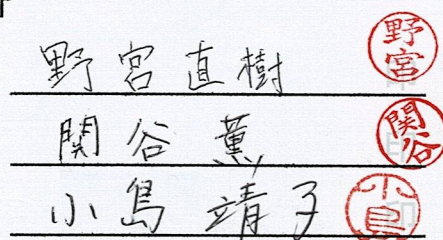 野宮直樹 野宮 印
関谷薫 関谷 印
小島靖子 小島 印